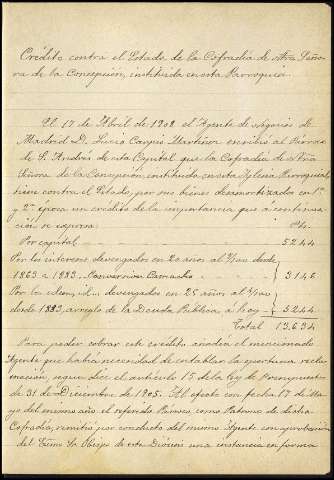 Crédito contra el Estado de la Cofradía de Ntra Seño-
ra de la Concepción, instituida en esta Parroquia.
El 17 de Abril de 1908 el Agente de Negocios de
Madrid D. Lucio Martínez escribió al Párroco
de S. Andrés de esta Capital que la Cofradía de Ntra
Señora de la Concepción instituida en esta Iglesia Parroquial,
tiene contra el Estado, por sus bienes desamortizados en 1ª
y 2ª época un crédito de la importancia que á continua-
ción se expresa: Pts.
Por capital 5244
Por los intereses devengados en 20 años al 3/100 desde
1863 a 1883. Conversión Camacho 3146
Por los idem, id. devengados en 25 años al 4/100
desde 1883, arreglo de la Deuda Pública á hoy 5244
Total 13,634
Para poder cobrar este crédito añadía el mencionado
Agente que había necesidad de entablar la oportuna recla-
mación, según dice el artículo 15 de la ley de Presupuestos
de 31 de Diciembre de 1905. Al efecto con fecha 17 de Ma-
yo del mismo año el referido Párroco, como Patrono de dicha
Cofradía, remitió por conducto del mismo Agente con aprobación
del Excmo Sr Obispo de esta Diócesis una instancia en forma